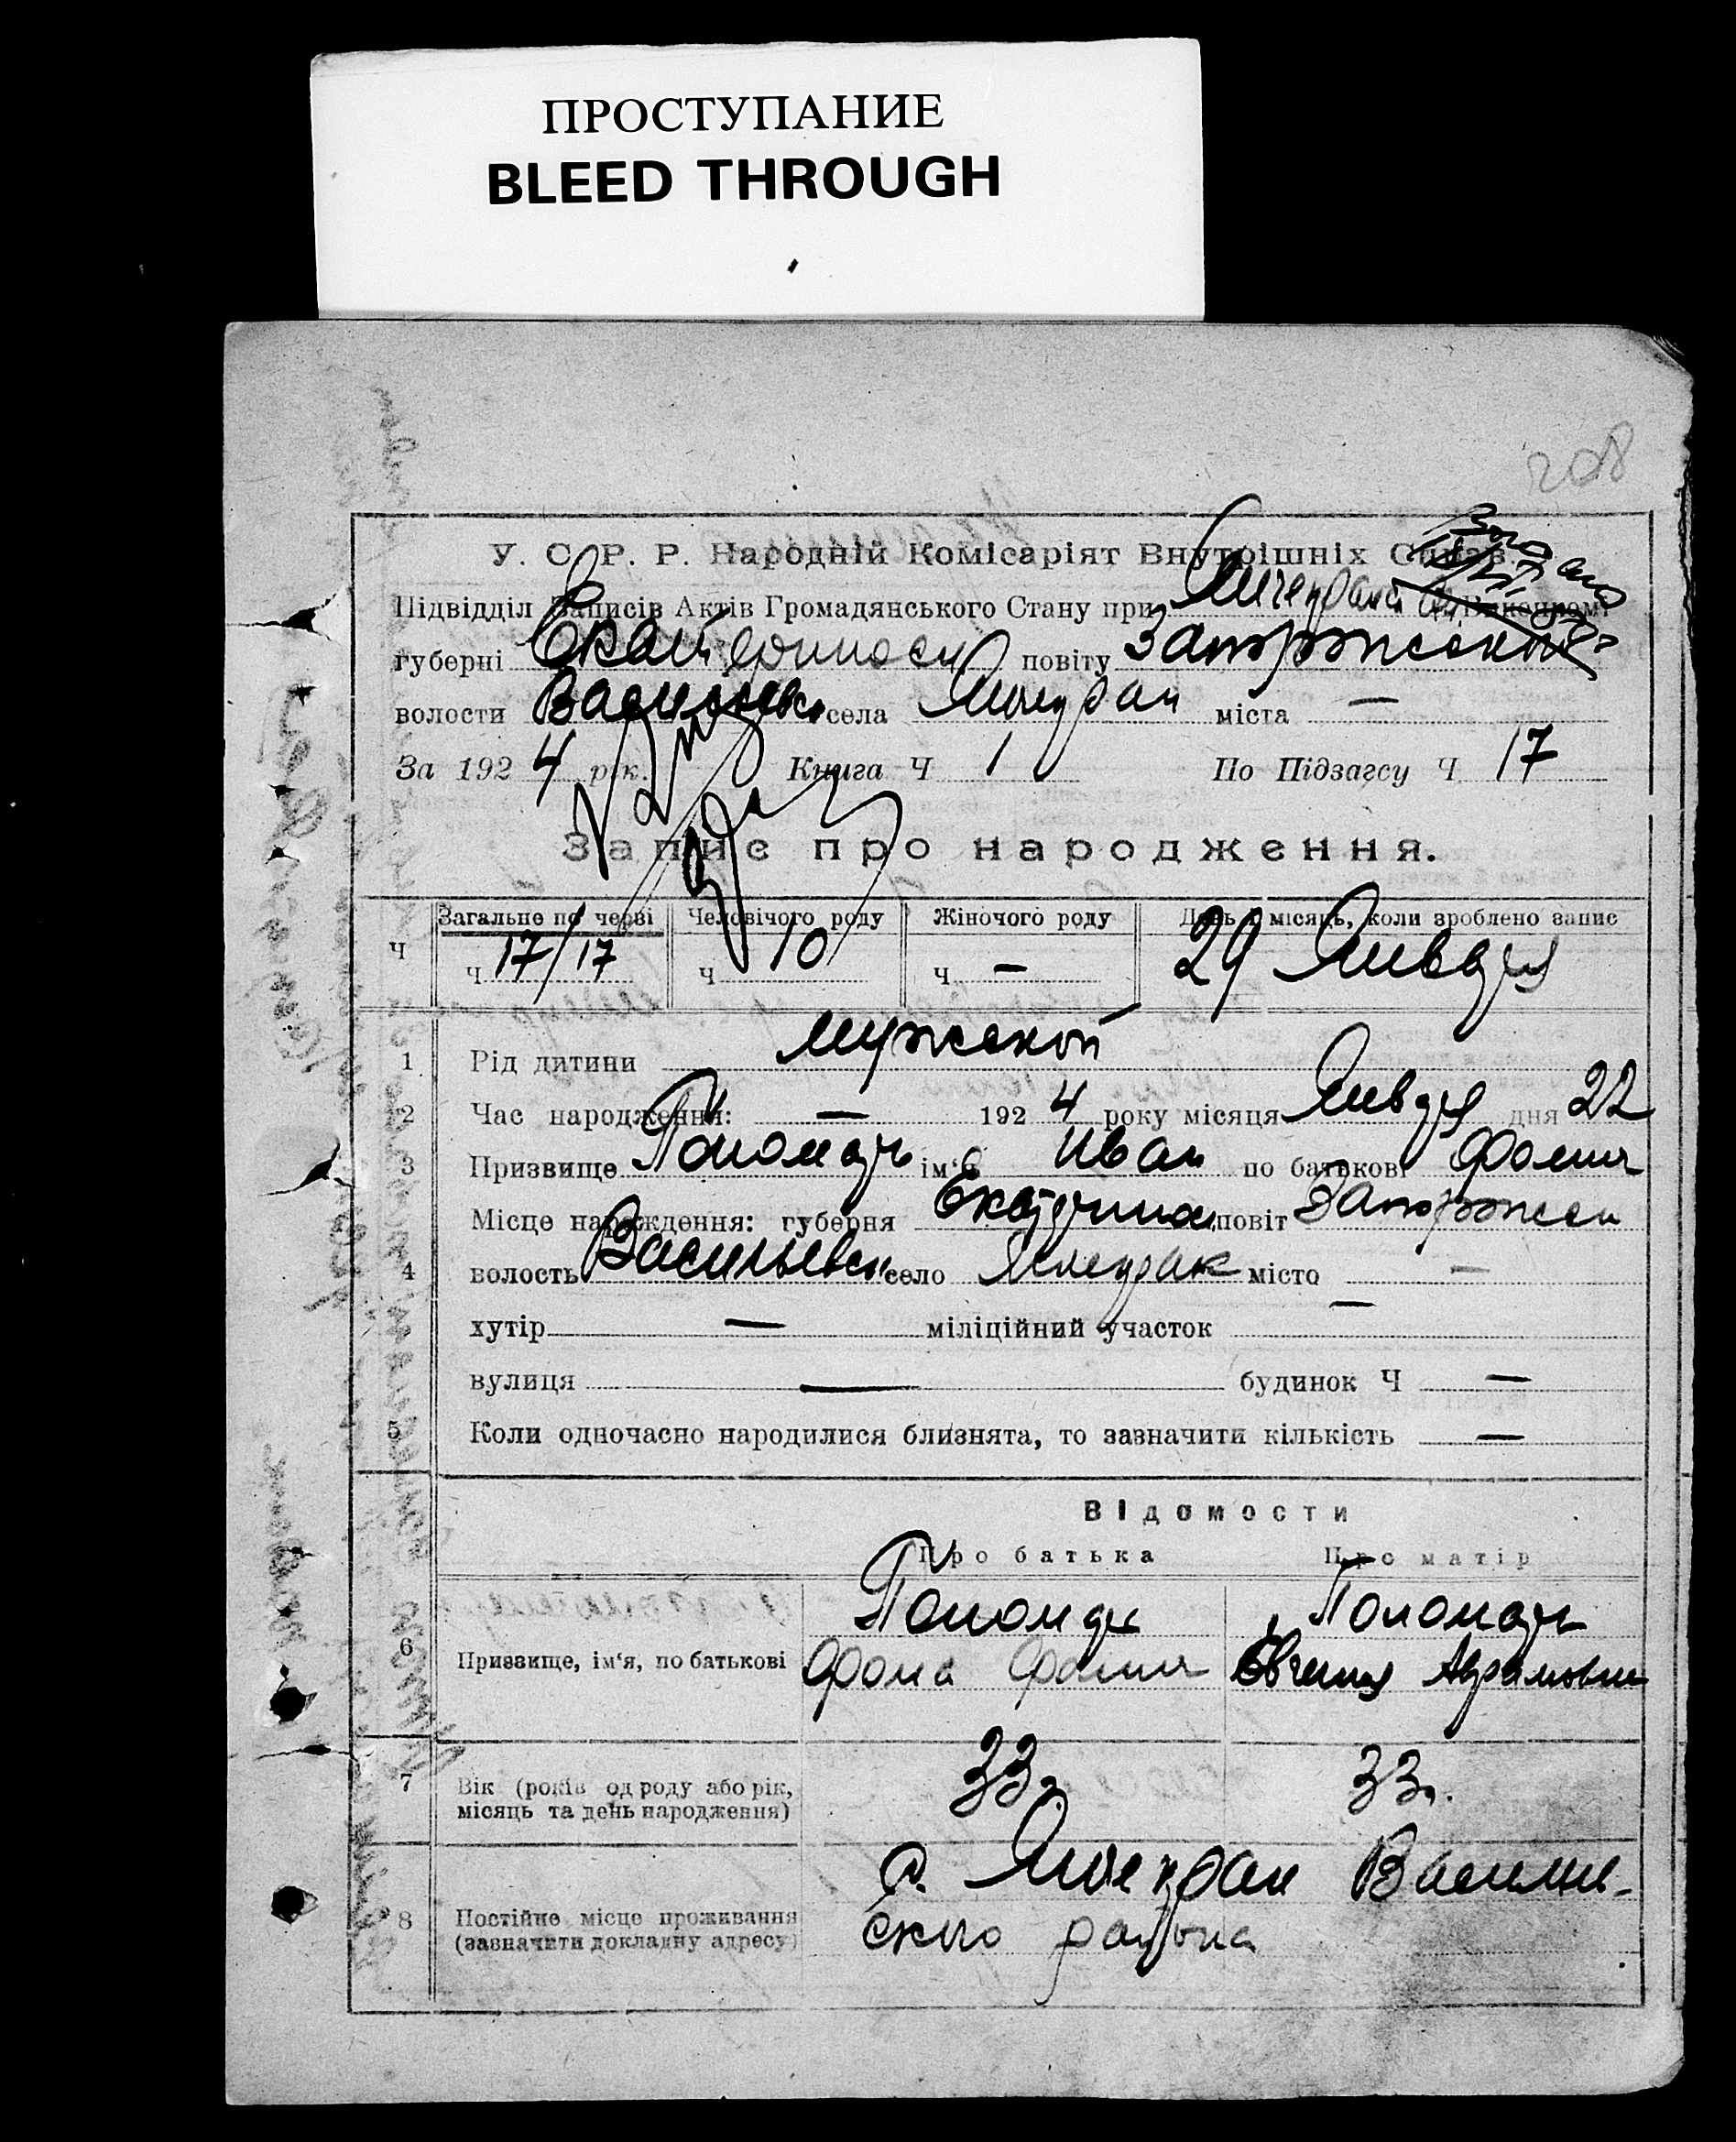 ПРОСТУПАНИЕ
BLEED THROUGH
208
У. С. Р. Р. Народній Комісаріят Внутрішніх Справ.
Підвідділ Записів Актів Громадянського Стану при
губерні Екатериносл повіту Запорожский
волости Васильевс села міста —
За 1924 рік. Книга Ч 1 По Підзагсу Ч 17
Запис про народження.
Загальне по черзі Человічого роду Жіночого роду День і місяць, коли зроблено запис
Ч Ч 17/17 Ч 10 Ч — 29 Января
1 Рід дитини мужской
2 Час народження: — 1924 року місяця Января дня 22
3 Призвище Пономарь ім'я Иван по батькові Фомич
Місце народження: губерня Екатеринос. повіт Запорожск
4 волость Васильевск село место —
хутір — міліційний участок —
вулиця — будинок Ч —
5 Коли одночасно народилися близнята, то зазначити кількість —
Відомости
Про батька Про матір
Пономарь Пономарь
6 Призвище, ім'я, по батькові Фома Фомич Евгения Абрамовна
7 Вік (років од роду або рік, 33 г. 33 г.
місяць та день народження)
с. Васильев-
8 Постійне місце проживання ского района
(зазначити докладну адресу)